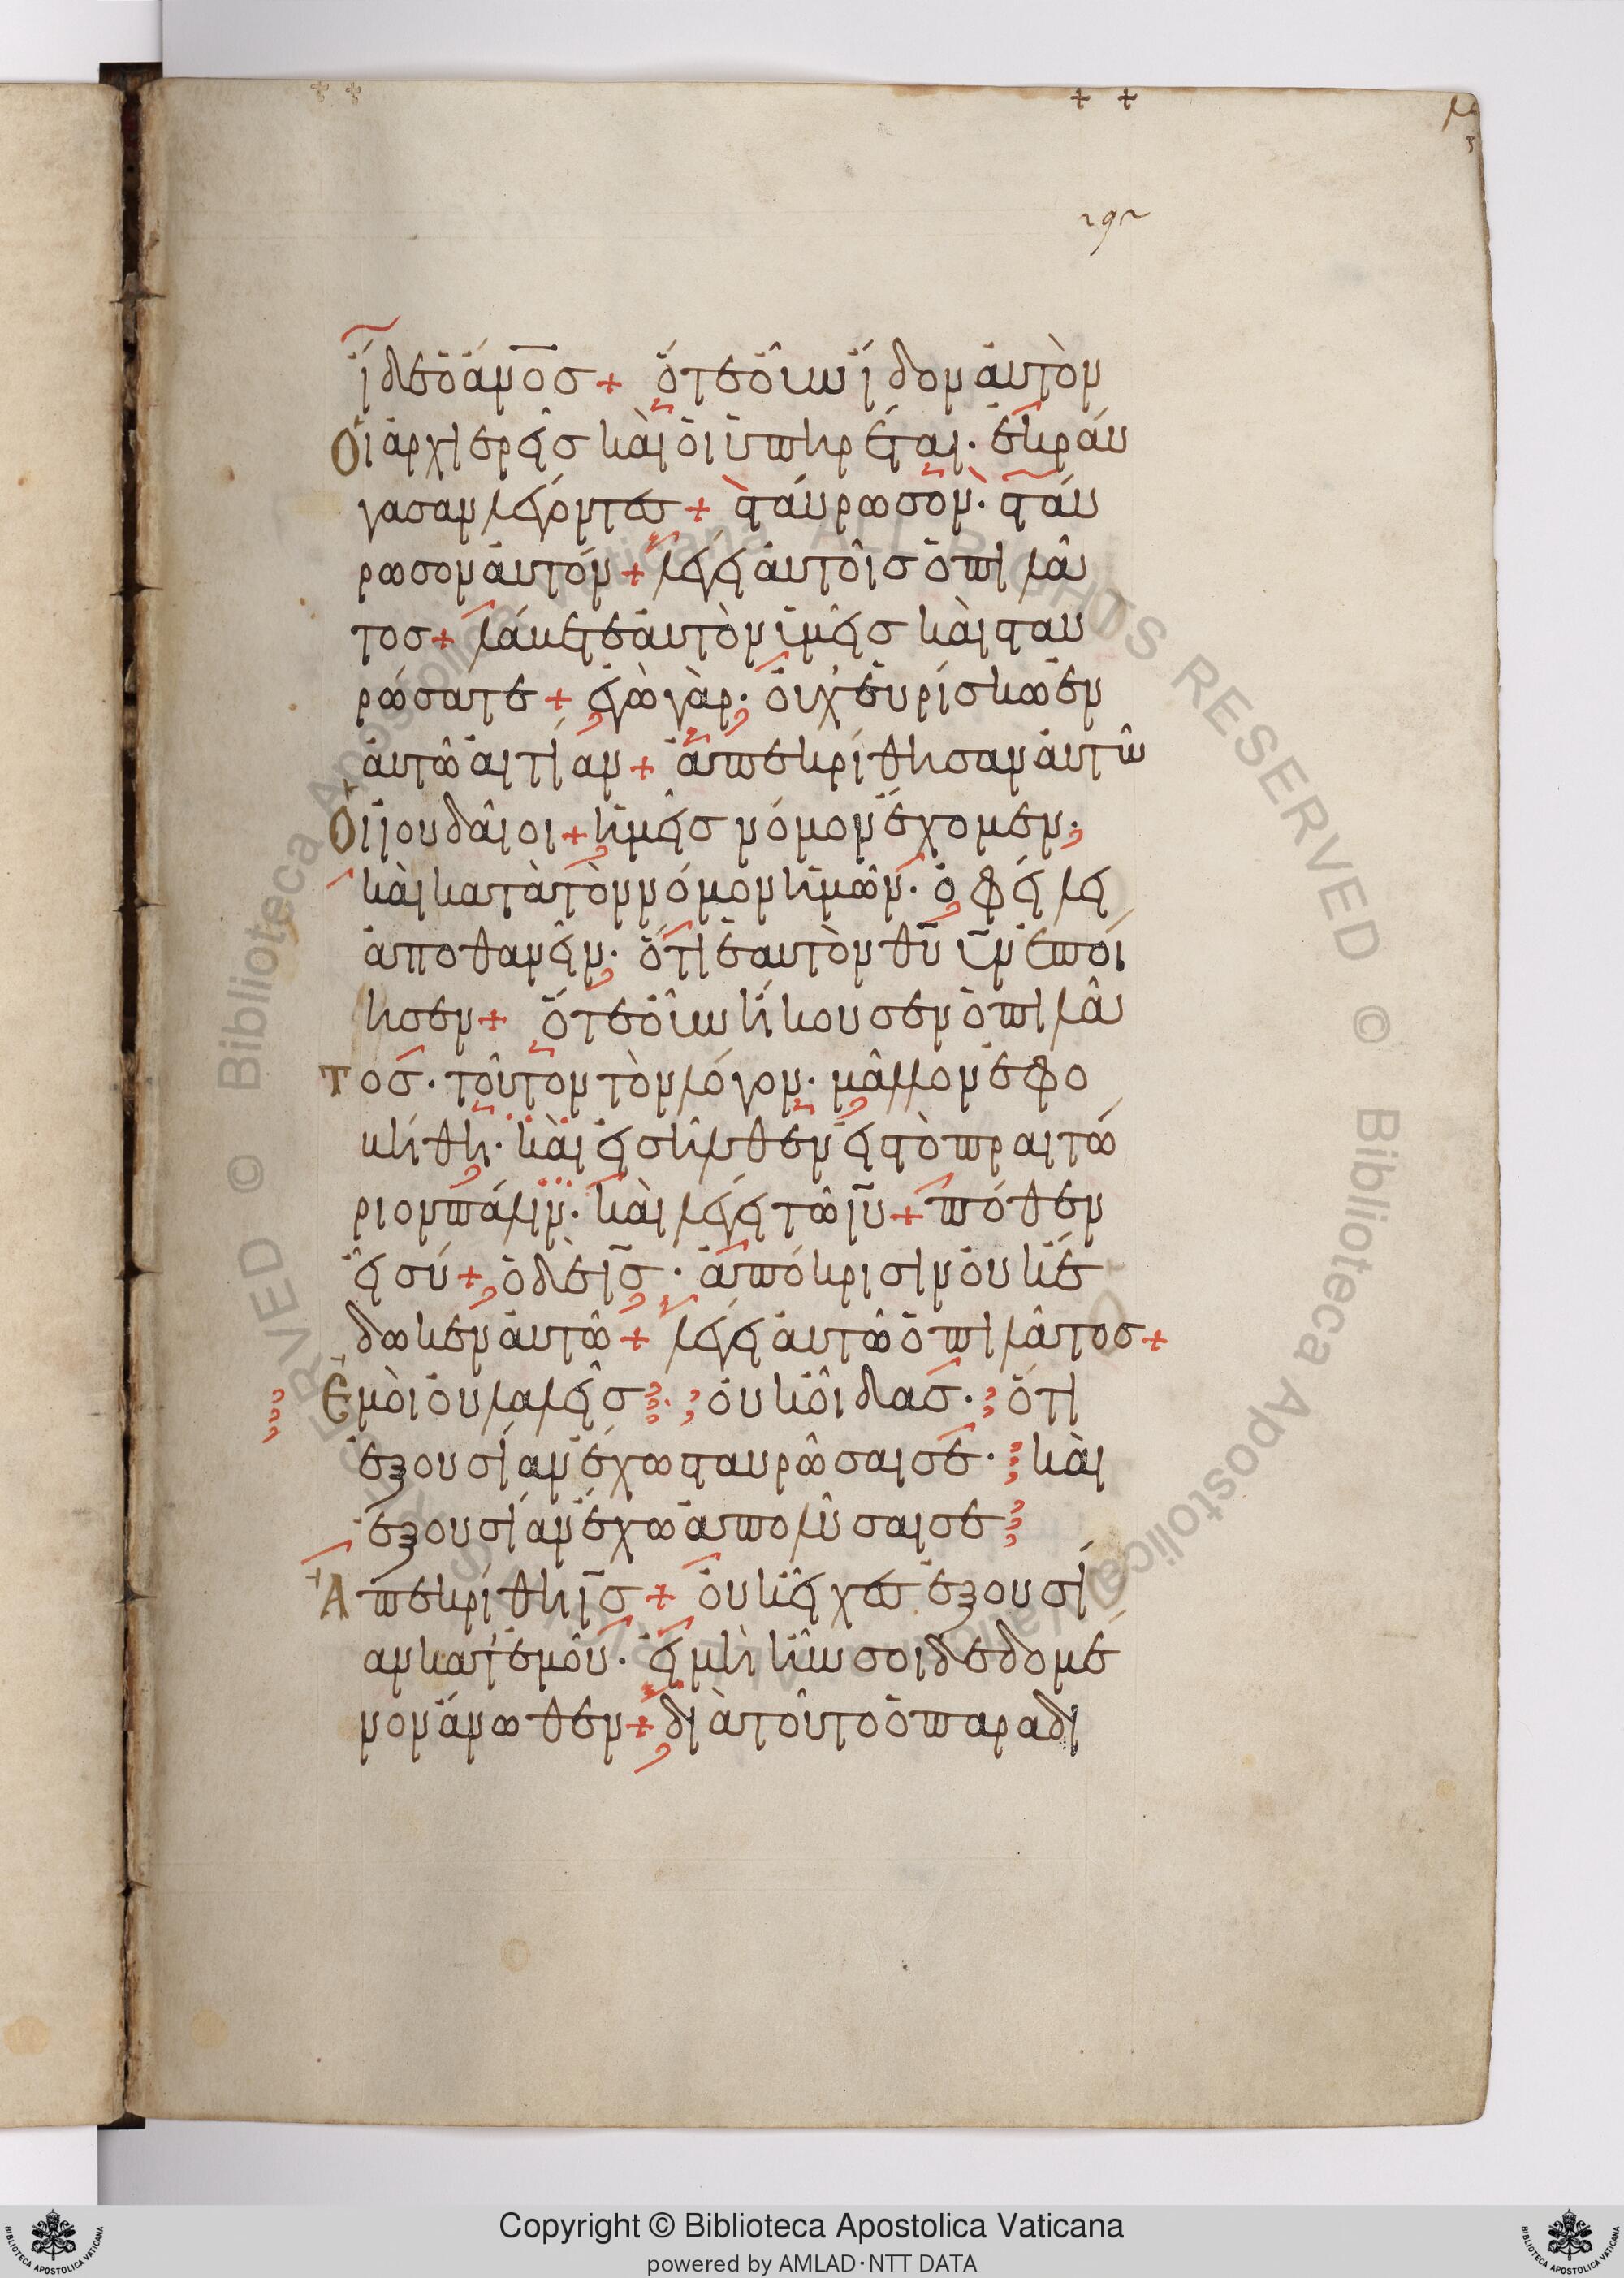 292
ἴδε ὁ ἄνο̅σ + ὅτε οὖν ἴδον αὐτὸν
Οἱ ἀρχιερεῖσ καὶ οἱ ὑπηρέται· ἐκραύ
γασαν λέγοντεσ + σταύρωσον· σταύ
ρωσον αὐτόν + λέγει αὐτοῖσ ὁ πιλᾶ
τοσ + λάβετε αὐτὸν ὑμεῖσ καὶ σταυ
ρώσατε + ἐγὼ γὰρ· οὐχ εὑρίσκω ἐν
αὐτῶ αἰτίαν + ἀπεκρίθησαν αὐτῶ
Οἱ ἰουδαῖοι + ἡμεῖσ νόμον ἔχομεν·
καὶ κατὰ τὸν νόμον ἡμῶν· ὀφείλει
ἀποθανεῖν· ὅτι ἑαυτὸν θ̅υ̅ υ̅ν̅ ἐποί
ησεν + ὅτε οὖν ἤκουσεν ὁ πιλᾶ
τοσ· τοῦτον τὸν λόγον· μᾶλλον ἐφο
βήθη· καὶ εἰσῆλθεν εἰσ τὸ πραιτώ
ριον πάλιν· καὶ λέγει τῶ ι̅υ̅ + πόθεν
εἶ σύ + ὁ δὲ ι̅σ̅· ἀπόκρισιν οὐκ ἔ
δωκεν αὐτῶ + λέγει αὐτῶ ὁ πιλᾶτοσ +
Ἐμοὶ οὐ λαλεῖσ· οὐκ οἶδασ· ὅτι
ἐξουσίαν ἔχω σταυρῶσαι σε· καὶ
ἐξουσίαν ἔχω ἀπολῦσαι σε
Ἀπεκρίθη ι̅σ̅ + οὐκ εἶχεσ ἐξουσί
αν κατ' ἐμοῦ· εἰ μὴ ἦν σοι δεδομέ
νον ἄνωθεν + διὰ τοῦτο ὁ παραδι
Copyright © Biblioteca Apostolica Vaticana
powered by AMLAD·NTT DATA